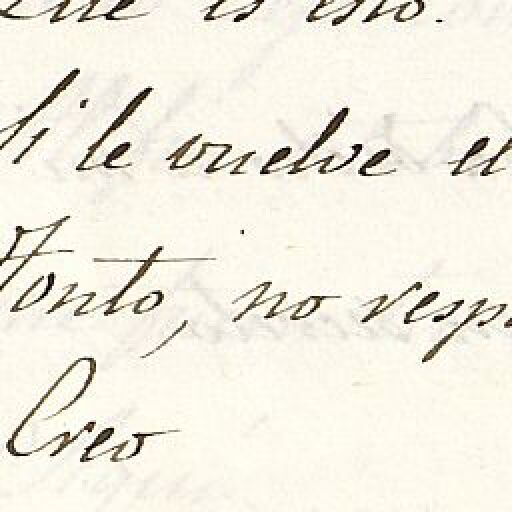 que es esto.
Si le vuelve el
Tonto, no resp
Creo